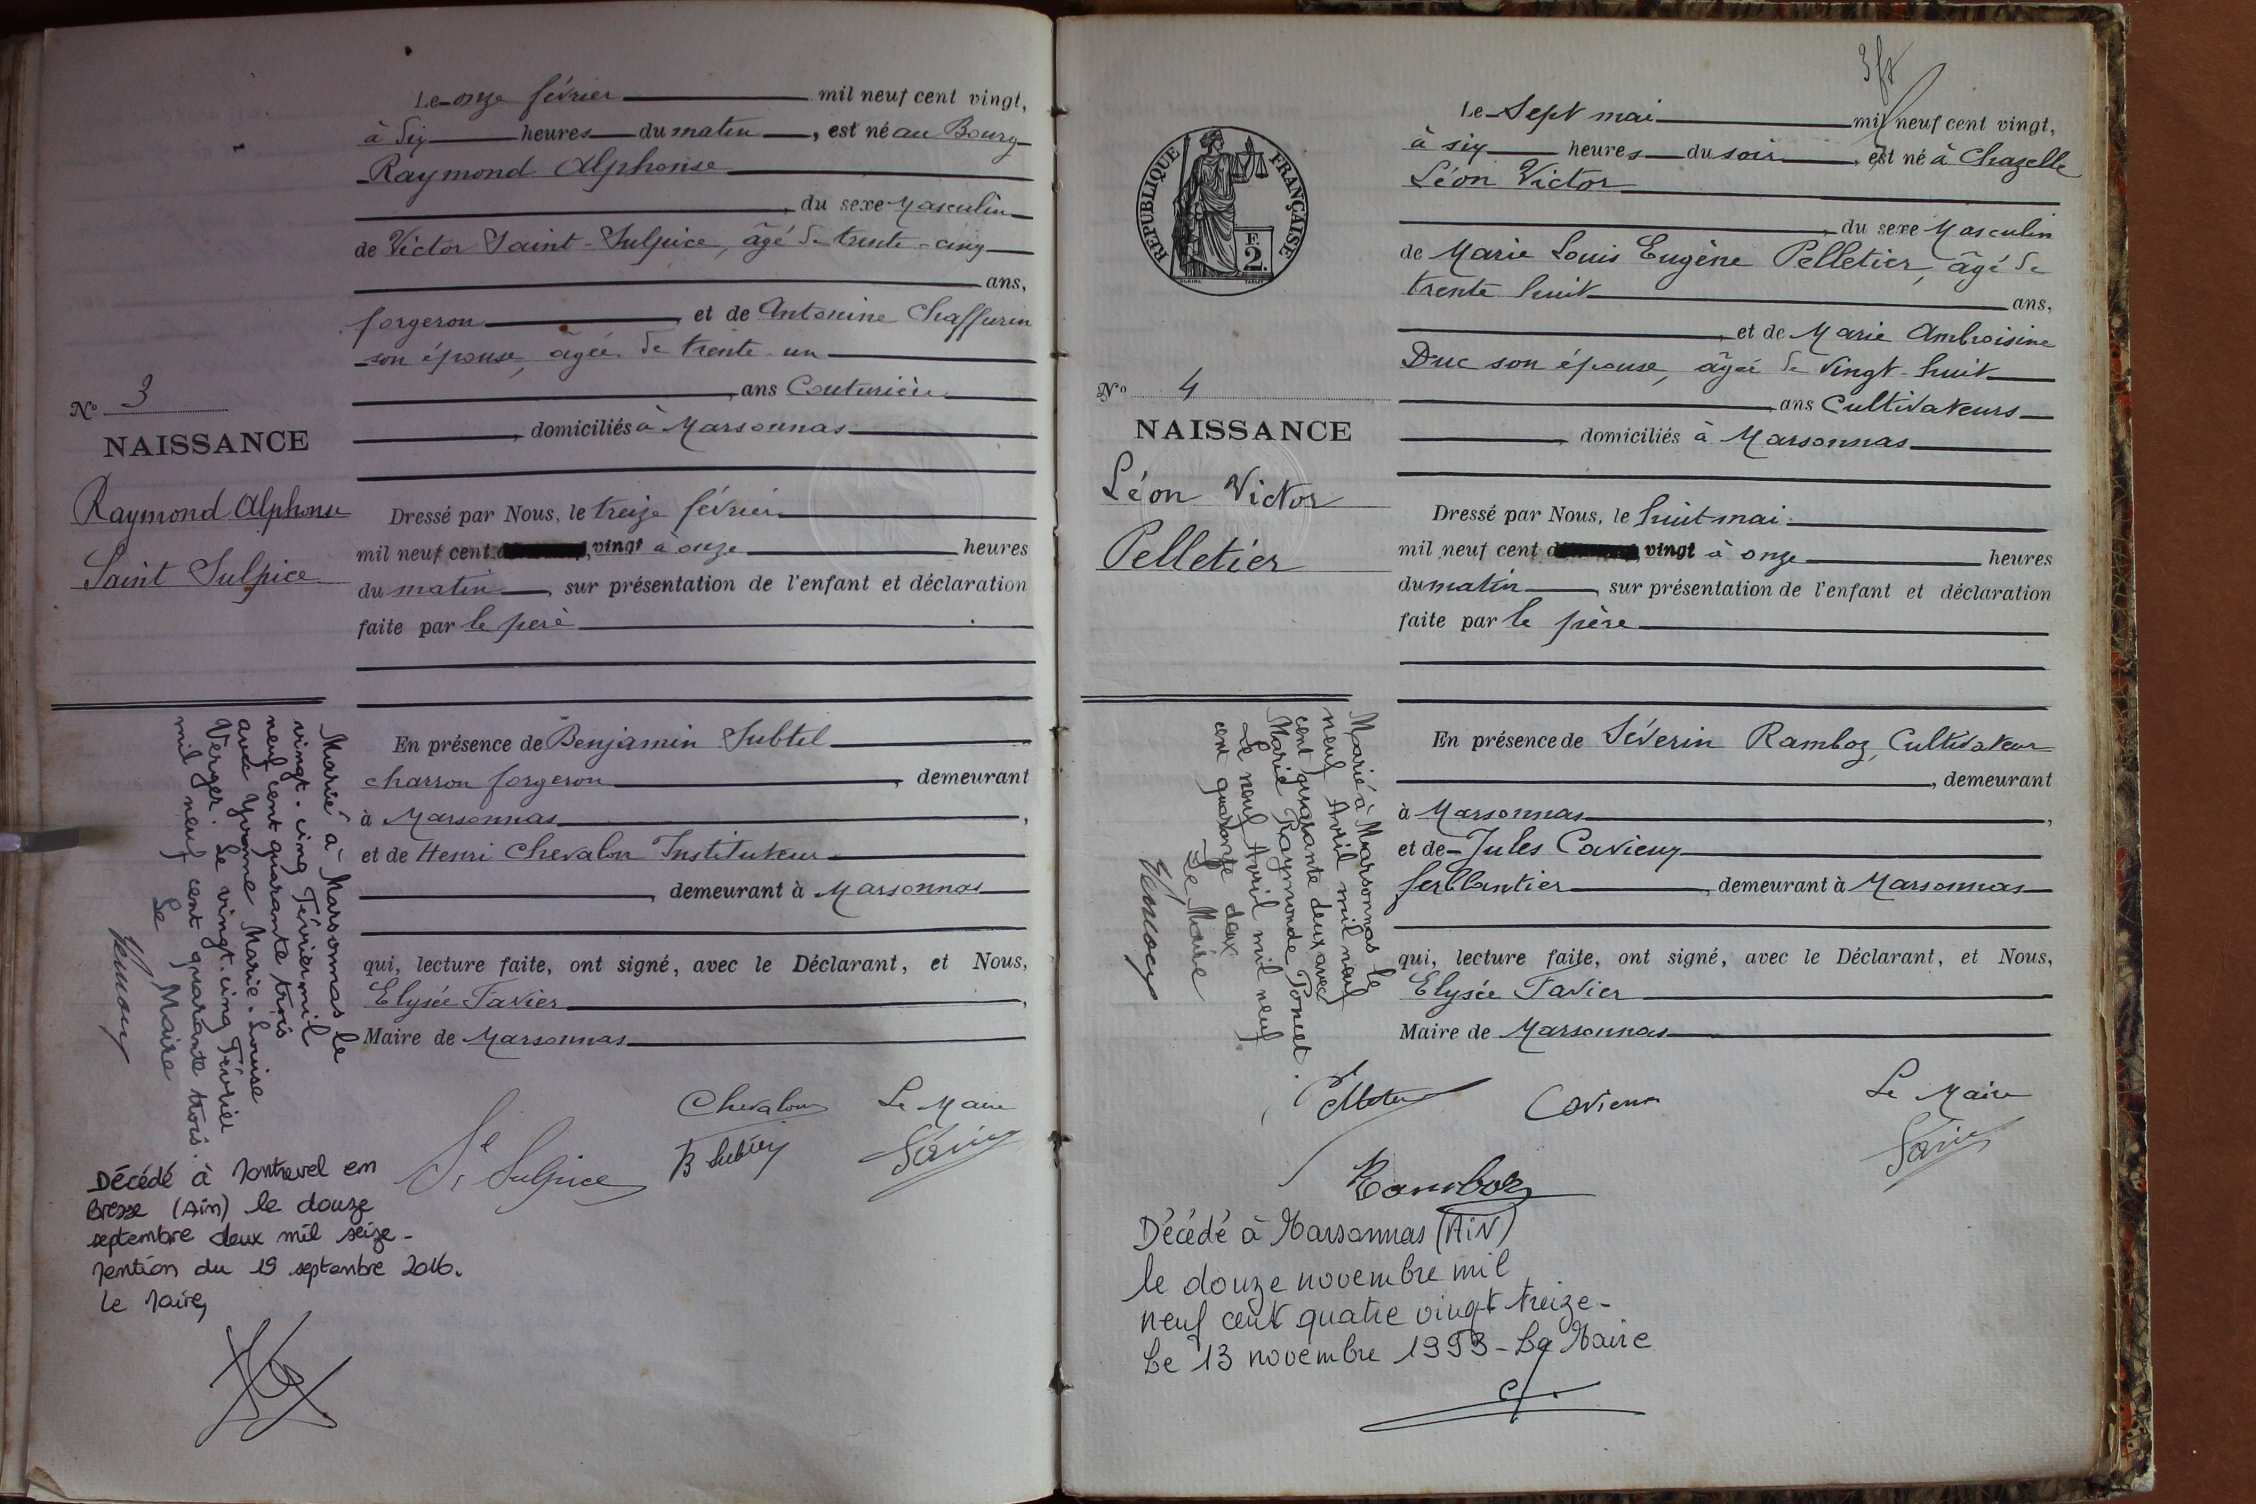 Le onze février mil neuf cent vingt,
à six heures du matin, est né au Bourg
Raymond Alphonse
, du sexe Masculin
de Victor Saint-Sulpice, âgé de trente-cinq
ans,
forgeron et de Antonine Chaffurin
son épouse, agée de trente-un
, ans Couturière
, domiciliés à Marsonnas
No 3
NAISSANCE
Raymond Alphonse
Saint Sulpice
Dressé par Nous, le treize février
mil neuf cent vingt à onze heures
du matin, sur présentation de l'enfant et déclaration
faite par le père
En présence de Benjamin Subtil
charron forgeron, demeurant
à Marsonnas,
et de Henri Chevalon Instituteur
, demeurant à Marsonnas
qui, lecture faite, ont signé, avec le Déclarant, et Nous,
Elysée Favier,
Maire de Marsonnas
Marié à Marsonnas le
vingt-cinq Février mil
neuf cent quarante trois
avec Yvonne Marie-Louise
Verger. Le vingt-cinq Février
mil neuf cent quarante trois.
Le Maire
Chevalon
Le Maire
St Sulpice
B Subtil
Favier
Décédé à Montrevel en
Bresse (Ain) le douze
septembre deux mil seize-
Mention du 19 septembre 2016.
Le Maire,
3 fx
REPUBLIQUE FRANÇAISE
F.
2.
Le Sept mai mil neuf cent vingt,
à six heures du soir, est né à Chazelle
Léon Victor
, du sexe Masculin
de Marie Louis Eugène Pelletier, âgé de
trente huit ans,
, et de Marie Ambroisine
Duc son épouse, âgée de vingt-huit
, ans Cultivateurs
, domiciliés à Marsonnas
No 4
NAISSANCE
Léon Victor
Pelletier
Dressé par Nous, le huit mai
mil neuf cent vingt à onze heures
du matin, sur présentation de l'enfant et déclaration
faite par le père
En présence de Séverin Ramboz, Cultivateur
, demeurant
à Marsonnas,
et de Jules Cavieux
ferblantier, demeurant à Marsonnas
qui, lecture faite, ont signé, avec le Déclarant, et Nous,
Elysée Favier
Maire de Marsonnas
Marié à Marsonnas le
neuf Avril mil neuf
cent quarante deux avec
Marie Raymonde Poncet.
Le neuf Avril mil neuf
cent quarante deux
Le Maire
Pelletier
Cavieux
Le Maire
Favier
Ramboz
Décédé à Marsonnas (AIN)
le douze novembre mil
neuf cent quatre vingt treize-
Le 13 novembre 1993- Le Maire